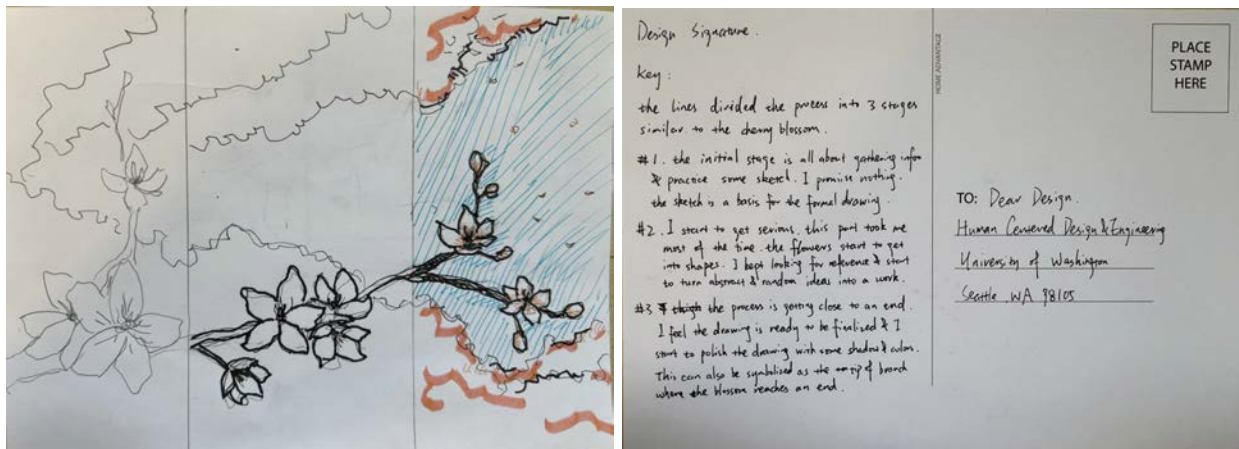 Design Signature.
Key:
the lines divided the process into 3 stages
similar to the cherry blossom.
#1. the initial stage is all about gathering infor
& practice some sketch. I promise nothing.
the sketch is a basis for the formal drawing.
#2. I start to get serious. this part took me
most of the time. the flowers start to get
into shapes. I kept looking for reference & start
to turn abstract & random ideas into a work.
#3 the process is getting close to an end.
I feel the drawing is ready to be finalized & I
start to polish the drawing with some shadow & colors.
This can also be symbolized as the tip of branch
where the blossom reaches an end.
HOME ADVANTAGE
PLACE
STAMP
HERE
TO: Dear Design.
Human Centered Design & Engineering
University of Washington
Seattle, WA 98105